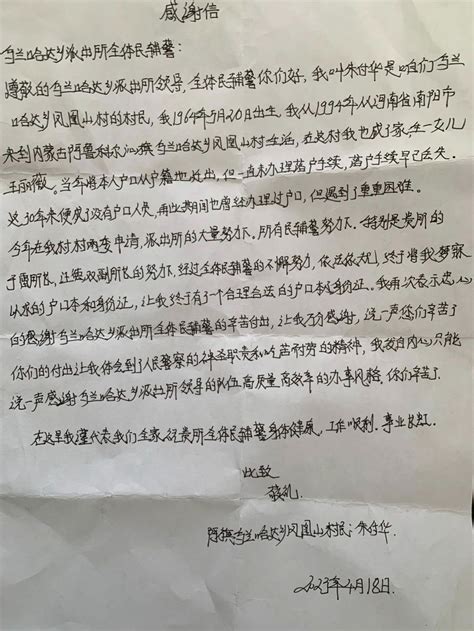 感谢信
乌兰哈达乡派出所全体民辅警：
尊敬的乌兰哈达乡派出所领导，全体民辅警你们好，我叫朱付华是咱们乌兰
哈达乡凤凰山村的村民，我1964年5月20日出生，我从1994年从河南省南阳市
来到内蒙古阿鲁科尔沁旗乌兰哈达乡凤凰山村生活，在这村我也成了家生一女儿
王丽薇。当年将本人户口从户籍地迁出，但一直未办理落户手续，落户手续早已丢失。
这30年来便成了没有户口人员，再此其间也曾经办理过户口，但遇到了重重困难。
今年在我村村两委申请，派出所的大量努力下。所有民辅警努力下。特别是贵所的
于雷所长，汪维双副所长的努力下，经过全体民辅警的不懈努力，依法依规，终于将我梦寐
以求的户口本和身份证，让我终于有了一个合理合法的户口本及身份证。我再次表示忠心
的感谢乌兰哈达乡派出所全体民辅警的辛苦付出，让我万分感谢，说一声您们辛苦了
你们的付出让我体会到了人民警察的神圣职责和吃苦耐劳的精神，我发自内心只能
说一声感谢乌兰哈达乡派出所领导的队伍高质量高效率的办事风格，你们辛苦了。
在这里我谨代表我们全家，祝贵所全体民辅警身体健康，工作顺利。事业长虹。
此致
敬礼
阿旗乌兰哈达乡凤凰山村民：朱付华
2023年4月18日